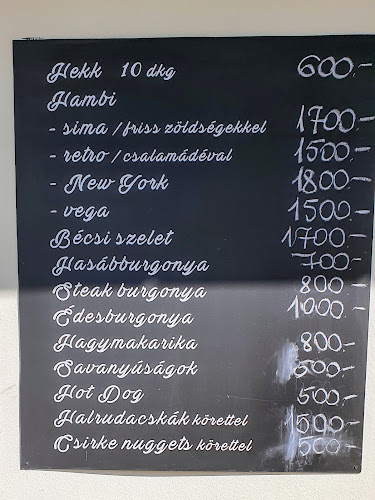 Hekk 10 dkg 600.-
Hambi
- sima / friss zöldségekkel 1700.-
- retro / csalamádéval 1500.-
- New York 1800.-
- vega 1500.-
Bécsi szelet 1700.-
Hasábburgonya 700.-
Steak burgonya 800.-
Édesburgonya 1000.-
Hagymakarika 800.-
Savanyúságok 500.-
Hot Dog 500.-
Halrudacskák körettel 1500.-
Csirke nuggets körettel